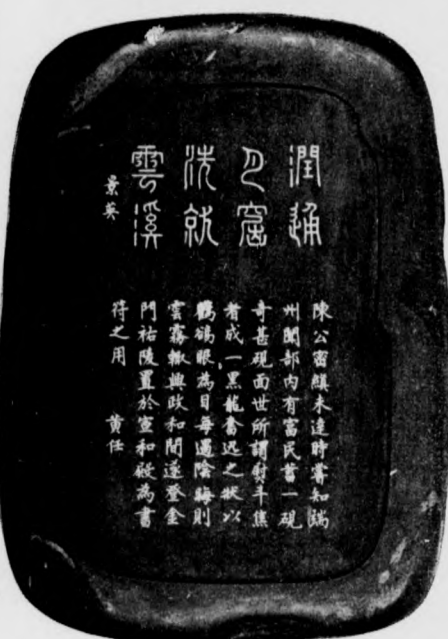 潤通
月窟
洗就
雲溪
景英
陳公密縝未達時嘗知端
州聞部內有富民蓄一硯
奇甚硯面世所謂熨斗焦
者成一黑龍奮迅之狀以
鸜鵒眼為目每遇陰晦則
雲霧輒興政和間遂登金
門祐陵置於宣和殿為書
符之用 黃任